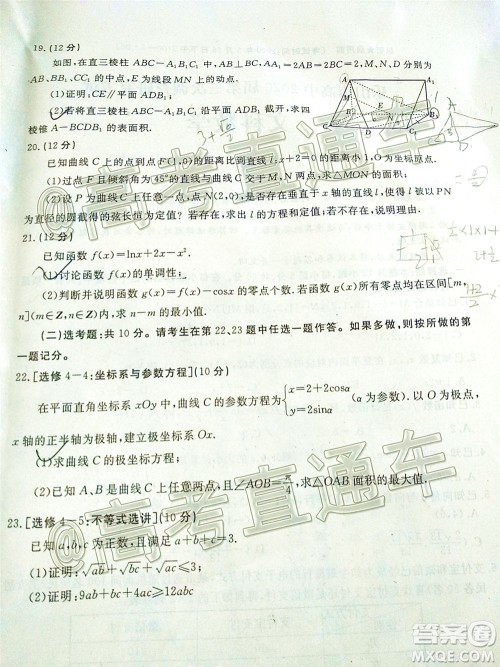 19.(12分)
如图,在直三棱柱ABC-A₁B₁C₁中,AB⊥AC,AB=AC=AA₁=2,D为BC的中点,M,N分别为
AB,BB₁的中点,E为线段MN上的动点.
(1)证明:CE∥平面ADB₁;
(2)若将直三棱柱ABC-A₁B₁C₁沿平面ADB₁截开,求四
棱锥A-BCDB₁的表面积.
20.(12分)
已知曲线C上的点到点F(1,0)的距离比到直线l:x+2=0的距离小1,O为坐标原点.
(1)过点F且倾斜角为45°的直线与曲线C交于M、N两点,求△MON的面积;
(2)设P为曲线C上任意一点,点N(2,0),是否存在垂直于x轴的直线l,使得l被以PN
为直径的圆截得的弦长恒为定值?若存在,求出l的方程和定值;若不存在,说明理由.
21.(12分)
已知函数f(x)=lnx+2x-x².
(1)讨论函数f(x)的单调性;
(2)判断并说明函数g(x)=f(x)-cosx的零点个数.若函数g(x)所有零点均在区间[m,
n](m∈Z,n∈Z)内,求n-m的最小值.
(二)选考题:共10分。请考生在第22、23题中任选一题作答。如果多做,则按所做的第
一题记分。
22.[选修4-4:坐标系与参数方程](10分)
在平面直角坐标系xOy中,曲线C的参数方程为{x=2+2cosα y=2sinα (α为参数).以O为极点,
x轴的正半轴为极轴,建立极坐标系Ox.
(1)求曲线C的极坐标方程;
(2)已知A、B是曲线C上任意两点,且∠AOB=π/4,求△OAB面积的最大值.
23.[选修4-5:不等式选讲](10分)
已知a,b,c为正数,且满足a+b+c=3.
(1)证明:√ab+√bc+√ac≤3;
(2)证明:9ab+bc+4ac≥12abc
@高考直通车
@高考直通车
@高考直通车
答案圈
MXQE.COM